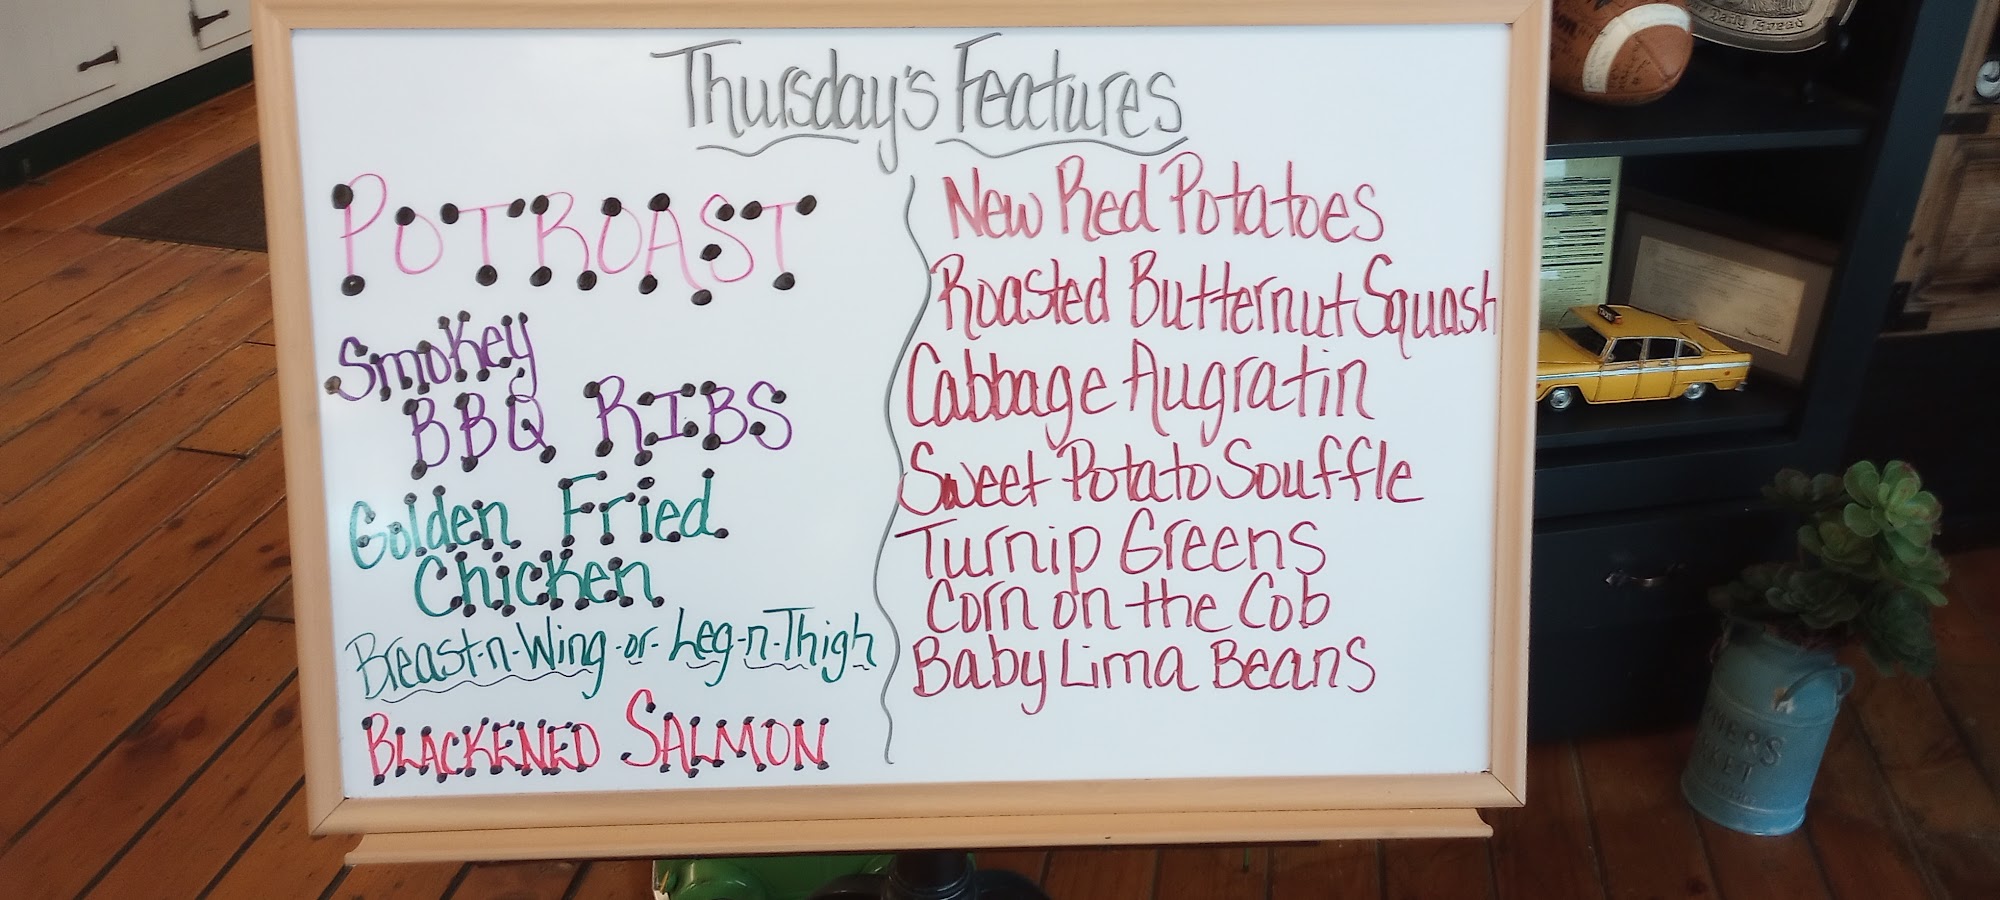 Thursday's Features
POTROAST
Smokey
BBQ RIBS
Golden Fried
Chicken
Breast-n-Wing-or-Leg-n-Thigh
BLACKENED SALMON
New Red Potatoes
Roasted Butternut Squash
Cabbage Augratin
Sweet Potato Souffle
Turnip Greens
Corn on the Cob
Baby Lima Beans
Daily Bread
TAXI